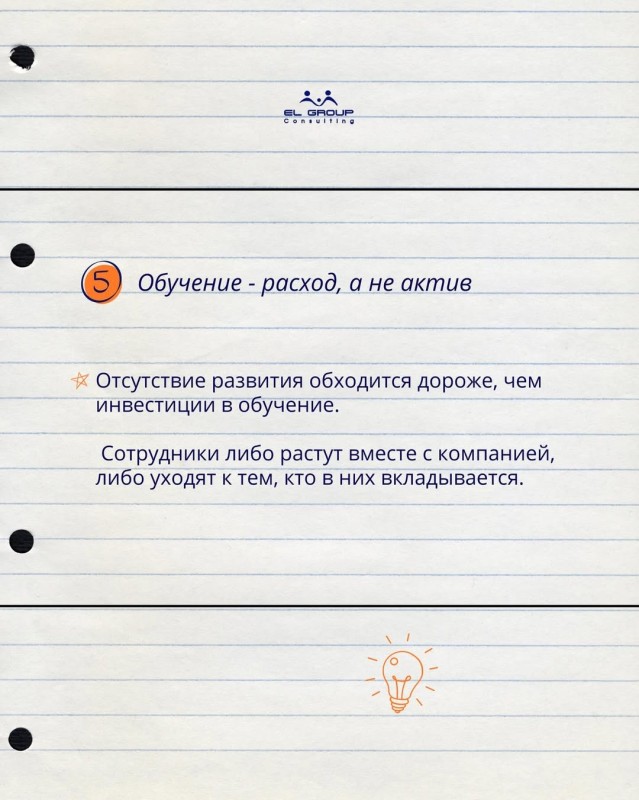 EL GROUP
Consulting
5 Обучение - расход, а не актив
Отсутствие развития обходится дороже, чем
инвестиции в обучение.
Сотрудники либо растут вместе с компанией,
либо уходят к тем, кто в них вкладывается.